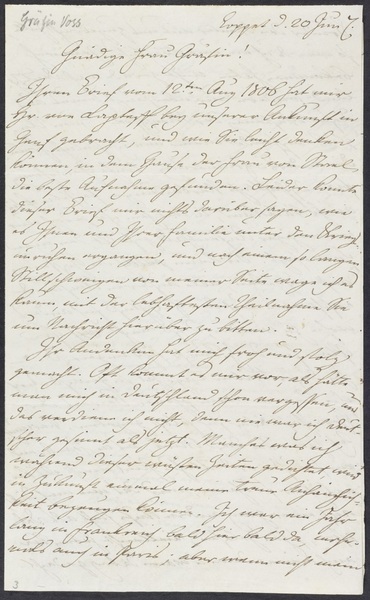 Gräfin Voss
Coppet d. 20 Jun 7.
Gnädige Frau Gräfin!
Ihren Brief vom 12ten Aug 1806 hat mir
Hr. von bey unserer Ankunft in
Genf gebracht, und wie Sie leicht denken
können, in dem Hause der Frau von Stael,
die beste Aufnahme gefunden. Leider konnte
dieser Brief mir nichts darüber sagen, wie
es Ihnen und Ihrer Familie unter den Kriegs
unruhen ergangen, und nach einem so langen
Stillschweigen von meiner Seite wage ich es
kaum, mit der lebhaftesten Theilnahme Sie
um Nachricht hierüber zu bitten.
Ihr Andenken hat mich froh und stolz
gemacht. Oft kommt es mir vor, als hätte
man mich in Deutschland schon vergessen, und
das verdiene ich nicht, denn nie war ich deut
scher gesinnt als jetzt. Manches was ich
während dieser wüsten Zeiten gedichtet, wird
in Zukunft einmal meine treue Anhänglich
keit bezeugen können. Ich war ein Jahr
lang in Frankreich bald hier bald da,
auch in Paris; aber wenn nicht mein
3